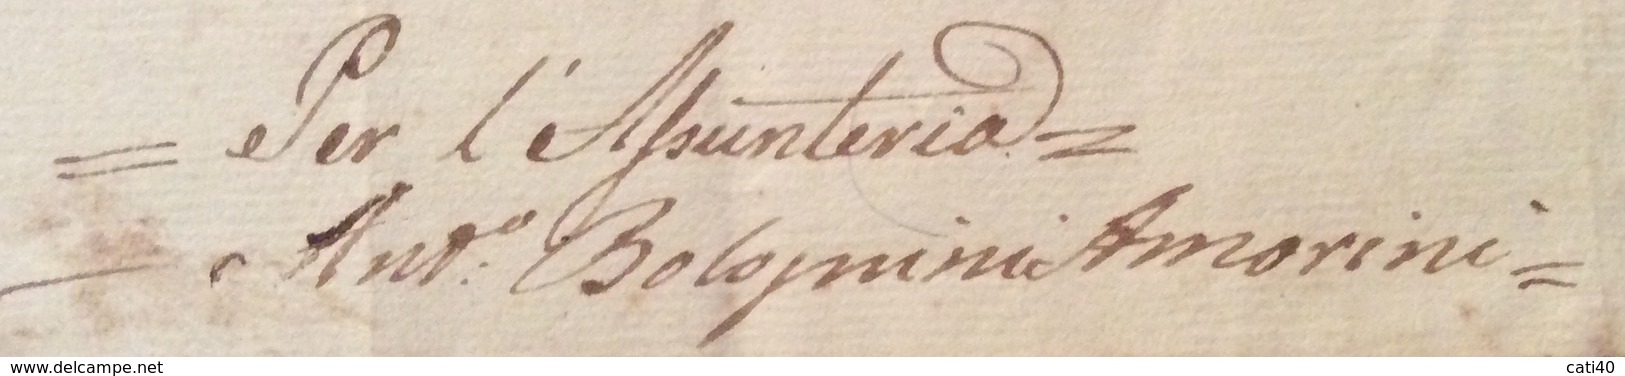 = Per l'Assunteria =
Ant.º Bolognini Amorini =
www.delcampe.net cati40